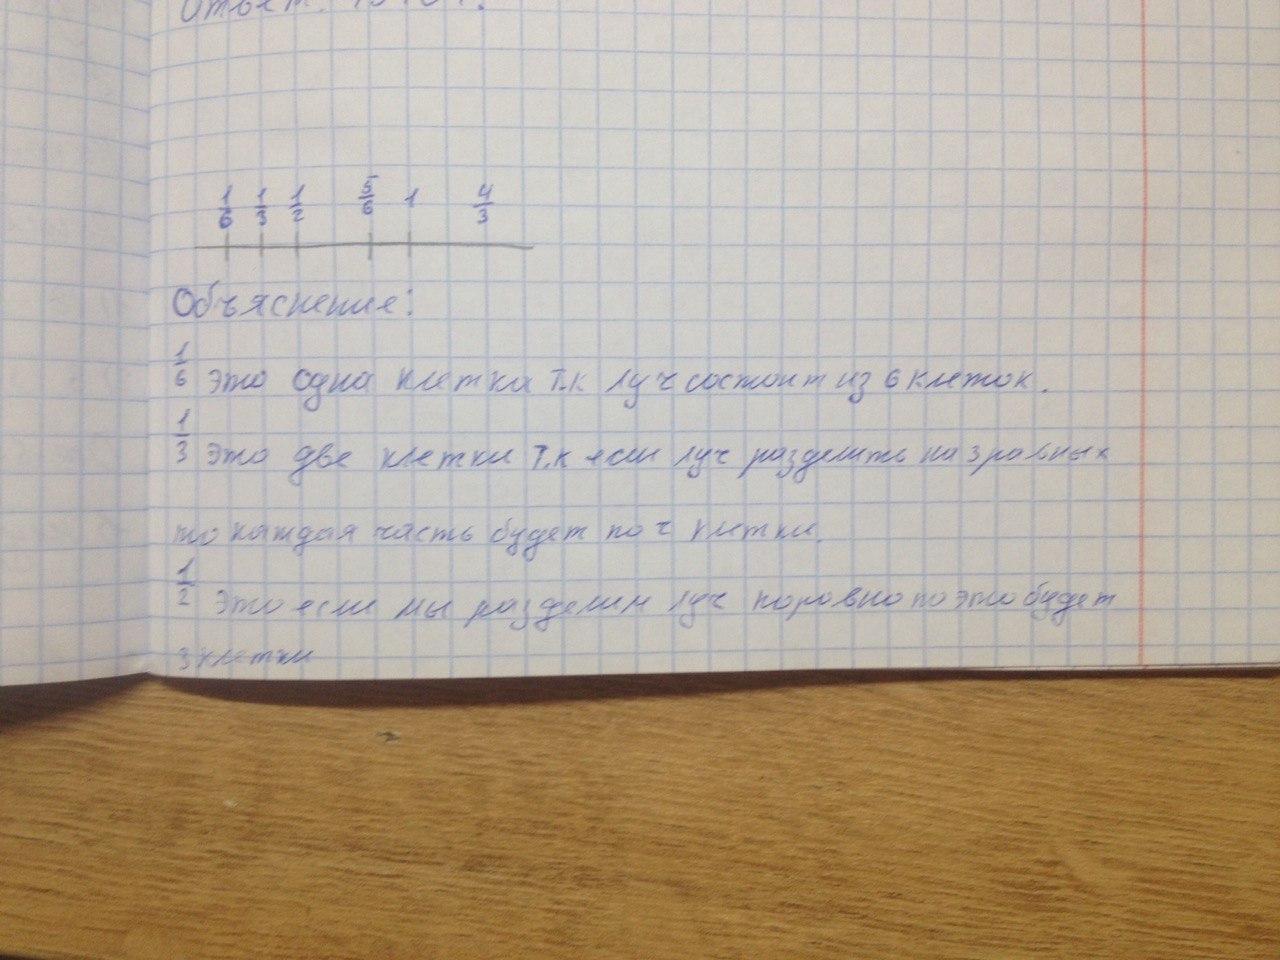 Ответ:
1/6 1/3 1/2 5/6 1 4/3
Объяснение:
1/6 это одна клетка т.к луч состоит из 6 клеток.
1/3 это две клетки т.к если луч разделить на 3 равных
то каждая часть будет по 2 клетки.
1/2 Это если мы разделим луч поровно то это будет
3 клетки